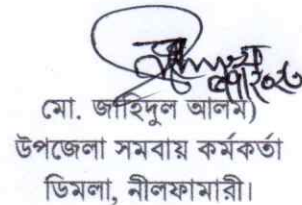 মো. জাহিদুল আলম)
উপজেলা সমবায় কর্মকর্তা
ডিমলা, নীলফামারী।